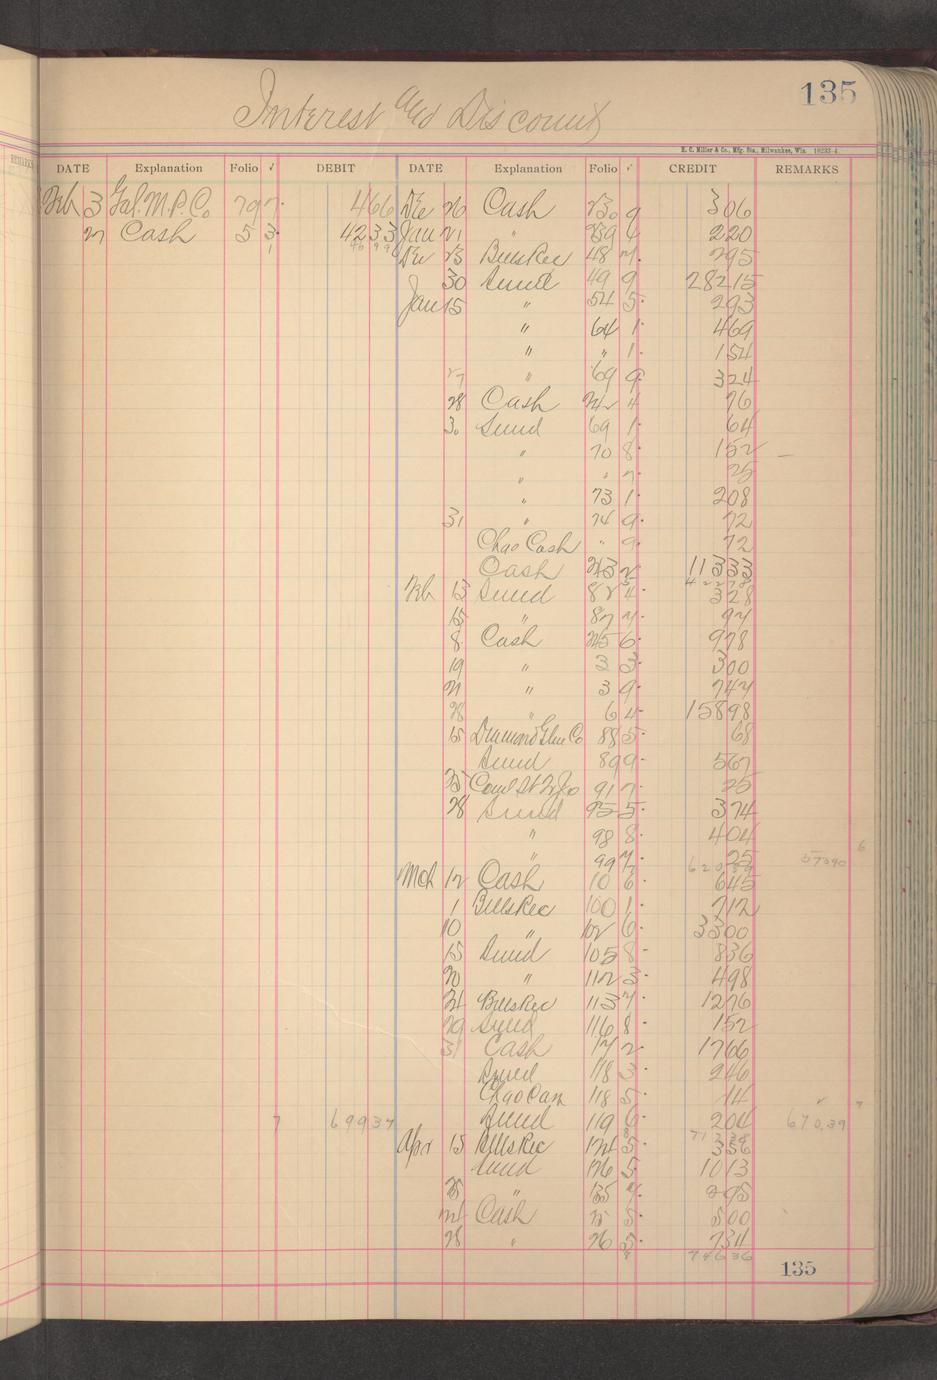 135
Interest and Discount
H. C. Miller & Co., Mfg. Sta., Milwaukee, Wis. 18233-4
DATE Explanation Folio ✓ DEBIT DATE Explanation Folio ✓ CREDIT REMARKS
Feb 3 Gal. M. P. Co. 79 7 466 Dec 26 Cash 230 9 306
27 Cash 5 3 4233 Jan 21 " 239 6 220
Dec 23 Bills Rec 48 7 295
30 Sund 49 9 28215
Jan 15 " 54 5 293
" 64 1 469
" " 1 154
27 " 69 9 324
28 Cash 242 4 76
30 Sund 69 1 64
" 70 8 152
" " 7 25
" 73 1 208
31 " 74 9 72
Chgo Cash " 9 72
Cash 243 2 11333
Feb 13 Sund 82 4 328
15 " 87 7
8 Cash 245 6 978
19 " 3 3 300
21 " 3 9 747
28 " 6 4 15898
15 Diamond Glue Co 88 5 68
Sund 89 9 567
25 91 7 25
28 Sund 95 5 374
" 98 8 404
" 99 7 25 57390 6
Mch 12 Cash 10 6 645
1 Bills Rec 100 1 712
10 " 102 6 3300
15 Sund 105 8 836
20 " 112 3 498
24 Bills Rec 113 7 1276
29 Sund 116 8 152
31 Cash 17 2 1766
Sund 118 3 246
118 5 14
7 69937 Sund 119 6 204 670.39 7
Apr 15 Bills Rec 124 5 356
Sund 126 5 1013
25 " 135 4 295
24 Cash 25 5 500
28 " 26 5 734
8 74636
135